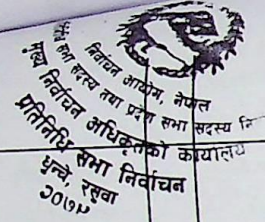 निर्वाचन आयोग, नेपाल
सभा सदस्य तथा प्रदेश सभा सदस्य नि
मुख्य निर्वाचन अधिकृतको कार्यालय
प्रतिनिधि सभा निर्वाचन
धुन्चे, रसुवा
२०७९